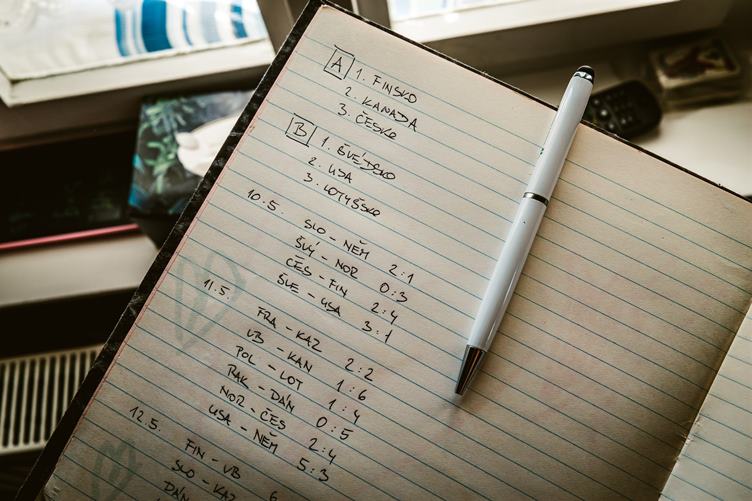 A 1. FINSKO
2. KANADA
3. ČESKO
B 1. ŠVÉDSKO
2. USA
3. LOTYŠSKO
10.5.
SLO - NĚM 2:1
ŠVÝ - NOR 0:3
ČES - FIN 2:4
ŠVE - USA 3:1
11.5.
FRA - KAZ 2:2
VB - KAN 1:6
POL - LOT 1:4
RAK - DÁN 0:5
NOR - ČES 2:4
USA - NĚM 5:3
12.5.
FIN - VB 6
SLO - KAZ
DÁN